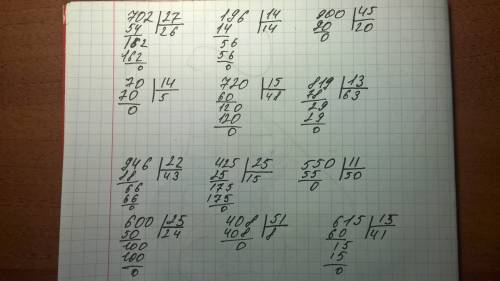 702 27 196 14 900 45
54 26 14 14 90 20
162 56 0
162 56
0 0
70 14 720 15 819 13
70 5 60 48 78 63
0 120 39
120 39
0 0
946 22 425 25 550 11
88 43 25 15 55 50
66 175 0
66 175
0 0
600 25 408 51 615 15
50 24 408 8 60 41
100 0 15
100 15
0 0